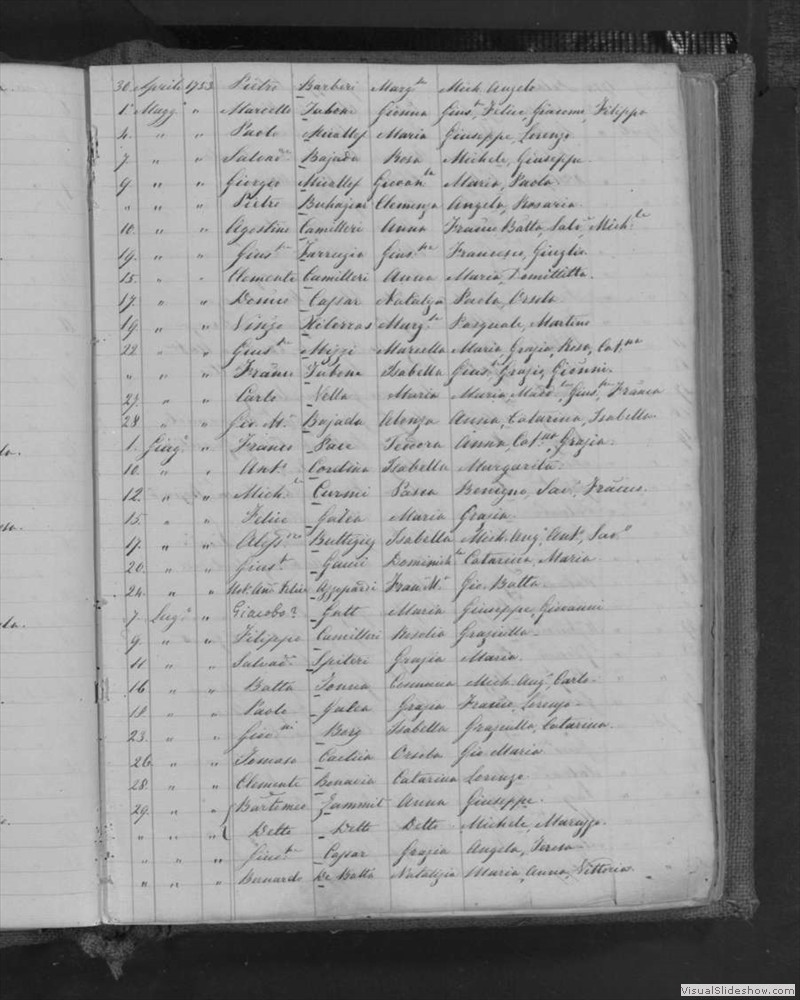 30 Aprile 1753 Pietro Barberi Marg.ta Mich. Angelo
1° Magg.o " Marcello Tabone Gionna Gius., Felice Giacomo, Filippo
4. " " Paolo Micallef Maria Giuseppe, Lorenzo
7 " " Salvad.re Bajada Rosa Michele, Giuseppe
9. " " Giorgio Micallef Giovan.la Maria, Paola
" " " Pietro Buhagiar Clemenza Angela, Rosaria
10. " " Agostino Camilleri Anna Franco Batta, Salv., Mich.le
14. " " Gius. Farrugia Gius.pa Francesco,
15. " " Clemente Camilleri Anna Maria, Domillitta
17. " " Cassar Natalzia Paola, Orsola
19. " " Marg.ta Pasquale, Martino
22. " " Gius. Mizzi Marcella Maria, Grazia, Rosa, Cat.na
" " " Franco Tabone Isabella Gius., Grazio, Gionni
27. " " Carlo Vella Maria Maria, Gius., Franca
28 " " Gio. M. Bajada Anna, Catarina, Isabella
1. Giug.o " Franco Pace Teodora Anna, Cat.na, Grazia
10. " " Ant. Cordina Isabella Margarita
12. " " Mich.le Curmi Passa Benigno, Sav., Franco
15. " " Felice Galea Maria Grazia
17. " " Aless. Buttigieg Isabella Mich. Ang., Ant., Sav.
20. " " Gius. Gauci Dominich.a Catarina, Maria
24. " " Not. Felice Azzopardi Fran. M. Gio. Batta
7. Lug.o " Giacobo? Gatt Maria Giuseppe, Giovanni
9. " " Filippo Camilleri Rosolia Graziulla
11 " " Salvad.re Spiteri Grazia Maria
16 " " Batta Mich. Ang., Carlo
18 " " Paolo Galea Grazia Franco, Lorenzo
23. " " Gio.ni Borg Isabella Graziulla, Catarina
26. " " Tomaso Orsola Gio. Maria
28. " " Clemente Bonacia Catarina Lorenzo
29. " " Bartomeo Zammit Anna Giuseppe
" " " Detto Detto Detto Michele, Maruzza
" " " Gius. Cassar Grazia Angela, Teresa
" " " Bernardo De Batta Natalizia Maria, Anna, Vittoria
VisualSlideshow.com